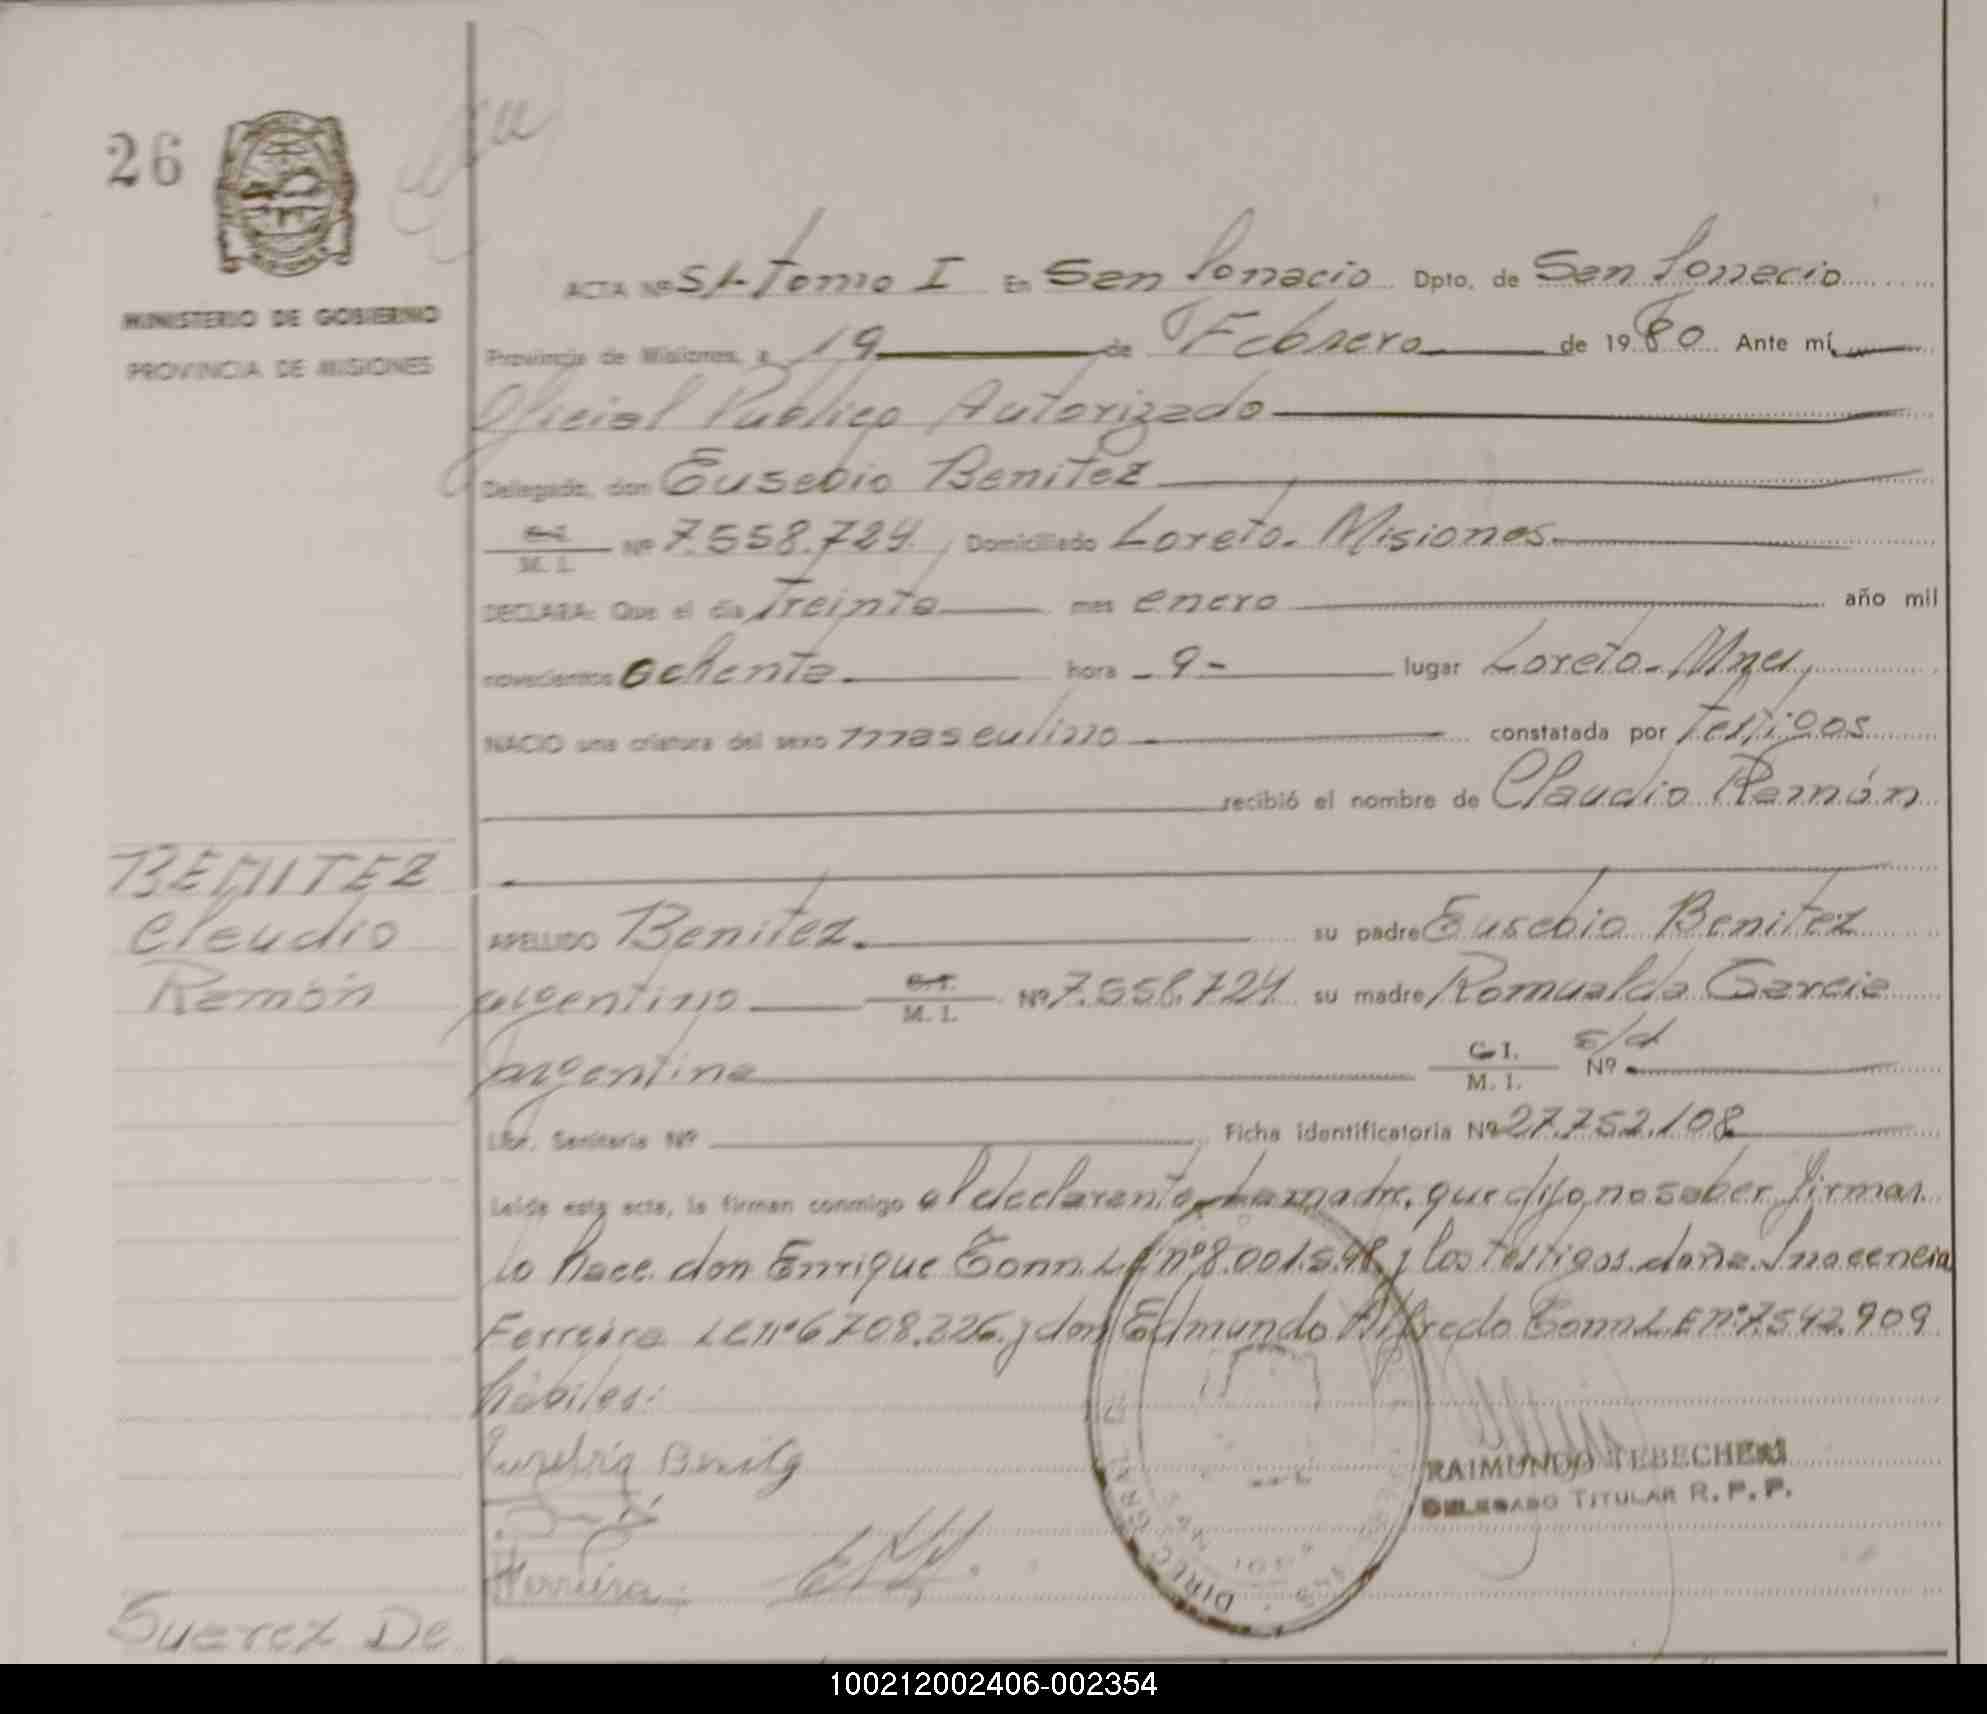 26
MINISTERIO DE GOBIERNO
PROVINCIA DE MISIONES
ACTA Nº 51-Tomo I En San Ignacio Dpto. de San Ignacio
Provincia de Misiones, a 19 de Febrero de 1980 Ante mí,
Oficial Público Autorizado
Delegado, don Eusebio Benitez
C.I. M. I. Nº 7.558.724 Domiciliado Loreto. Misiones.
DECLARA: Que el día Treinta mes enero año mil
novecientos Ochenta hora - 9 - lugar Loreto - Mnes,
NACIO una criatura del sexo masculino constatada por Testigos
recibió el nombre de Claudio Ramón
BENITEZ
Claudio
Ramón
APELLIDO Benitez. su padre Eusebio Benitez
argentino C.I. M. I. Nº 7.558.724 su madre Romualda Garcia
argentina C.I. M. I. Nº s/d
Libr. Sanitaria Nº Ficha identificatoria Nº 27.752.108
Leída esta acta, la firman conmigo el declarante, La madre, que dijo no saber firmar
lo hace don Enrique Gonn LE nº 8.001.598 y los Testigos doña Inocencia
Ferreira LE nº 6708.226 y don Edmundo Alfredo Gonn LE nº 7.542.909
hábiles:
Eusebio Benitez
Ferreira
RAIMUNDO TEBECHERI
DELEGADO TITULAR R. P. P.
Suarez De
100212002406-002354